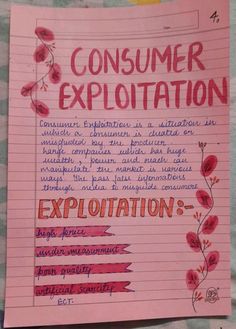 4
CONSUMER
EXPLOITATION
Consumer Exploitation is a situation in
which a consumer is cheated or
misguided by the producer.
Large companies which has huge
wealth, power and reach can
manipulate the market is various
ways. The pass false informations
through media to misguide consumers
EXPLOITATION:-
high price
under measurment
poor quality
artificial scarcity
ECT.